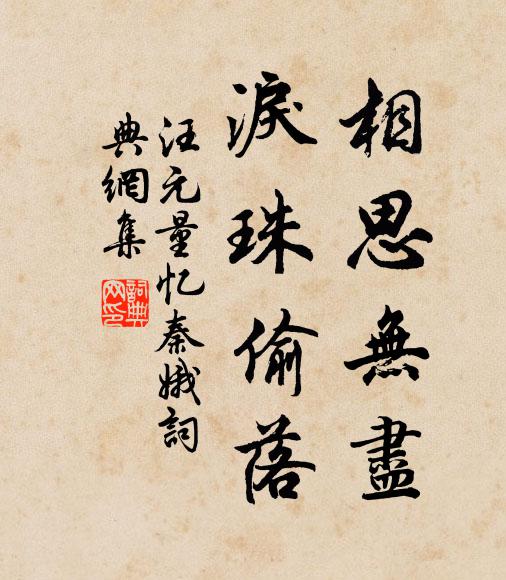 相思無盡
淚珠偷落
汪元量忆秦娥詞
典網集
詞典
网印